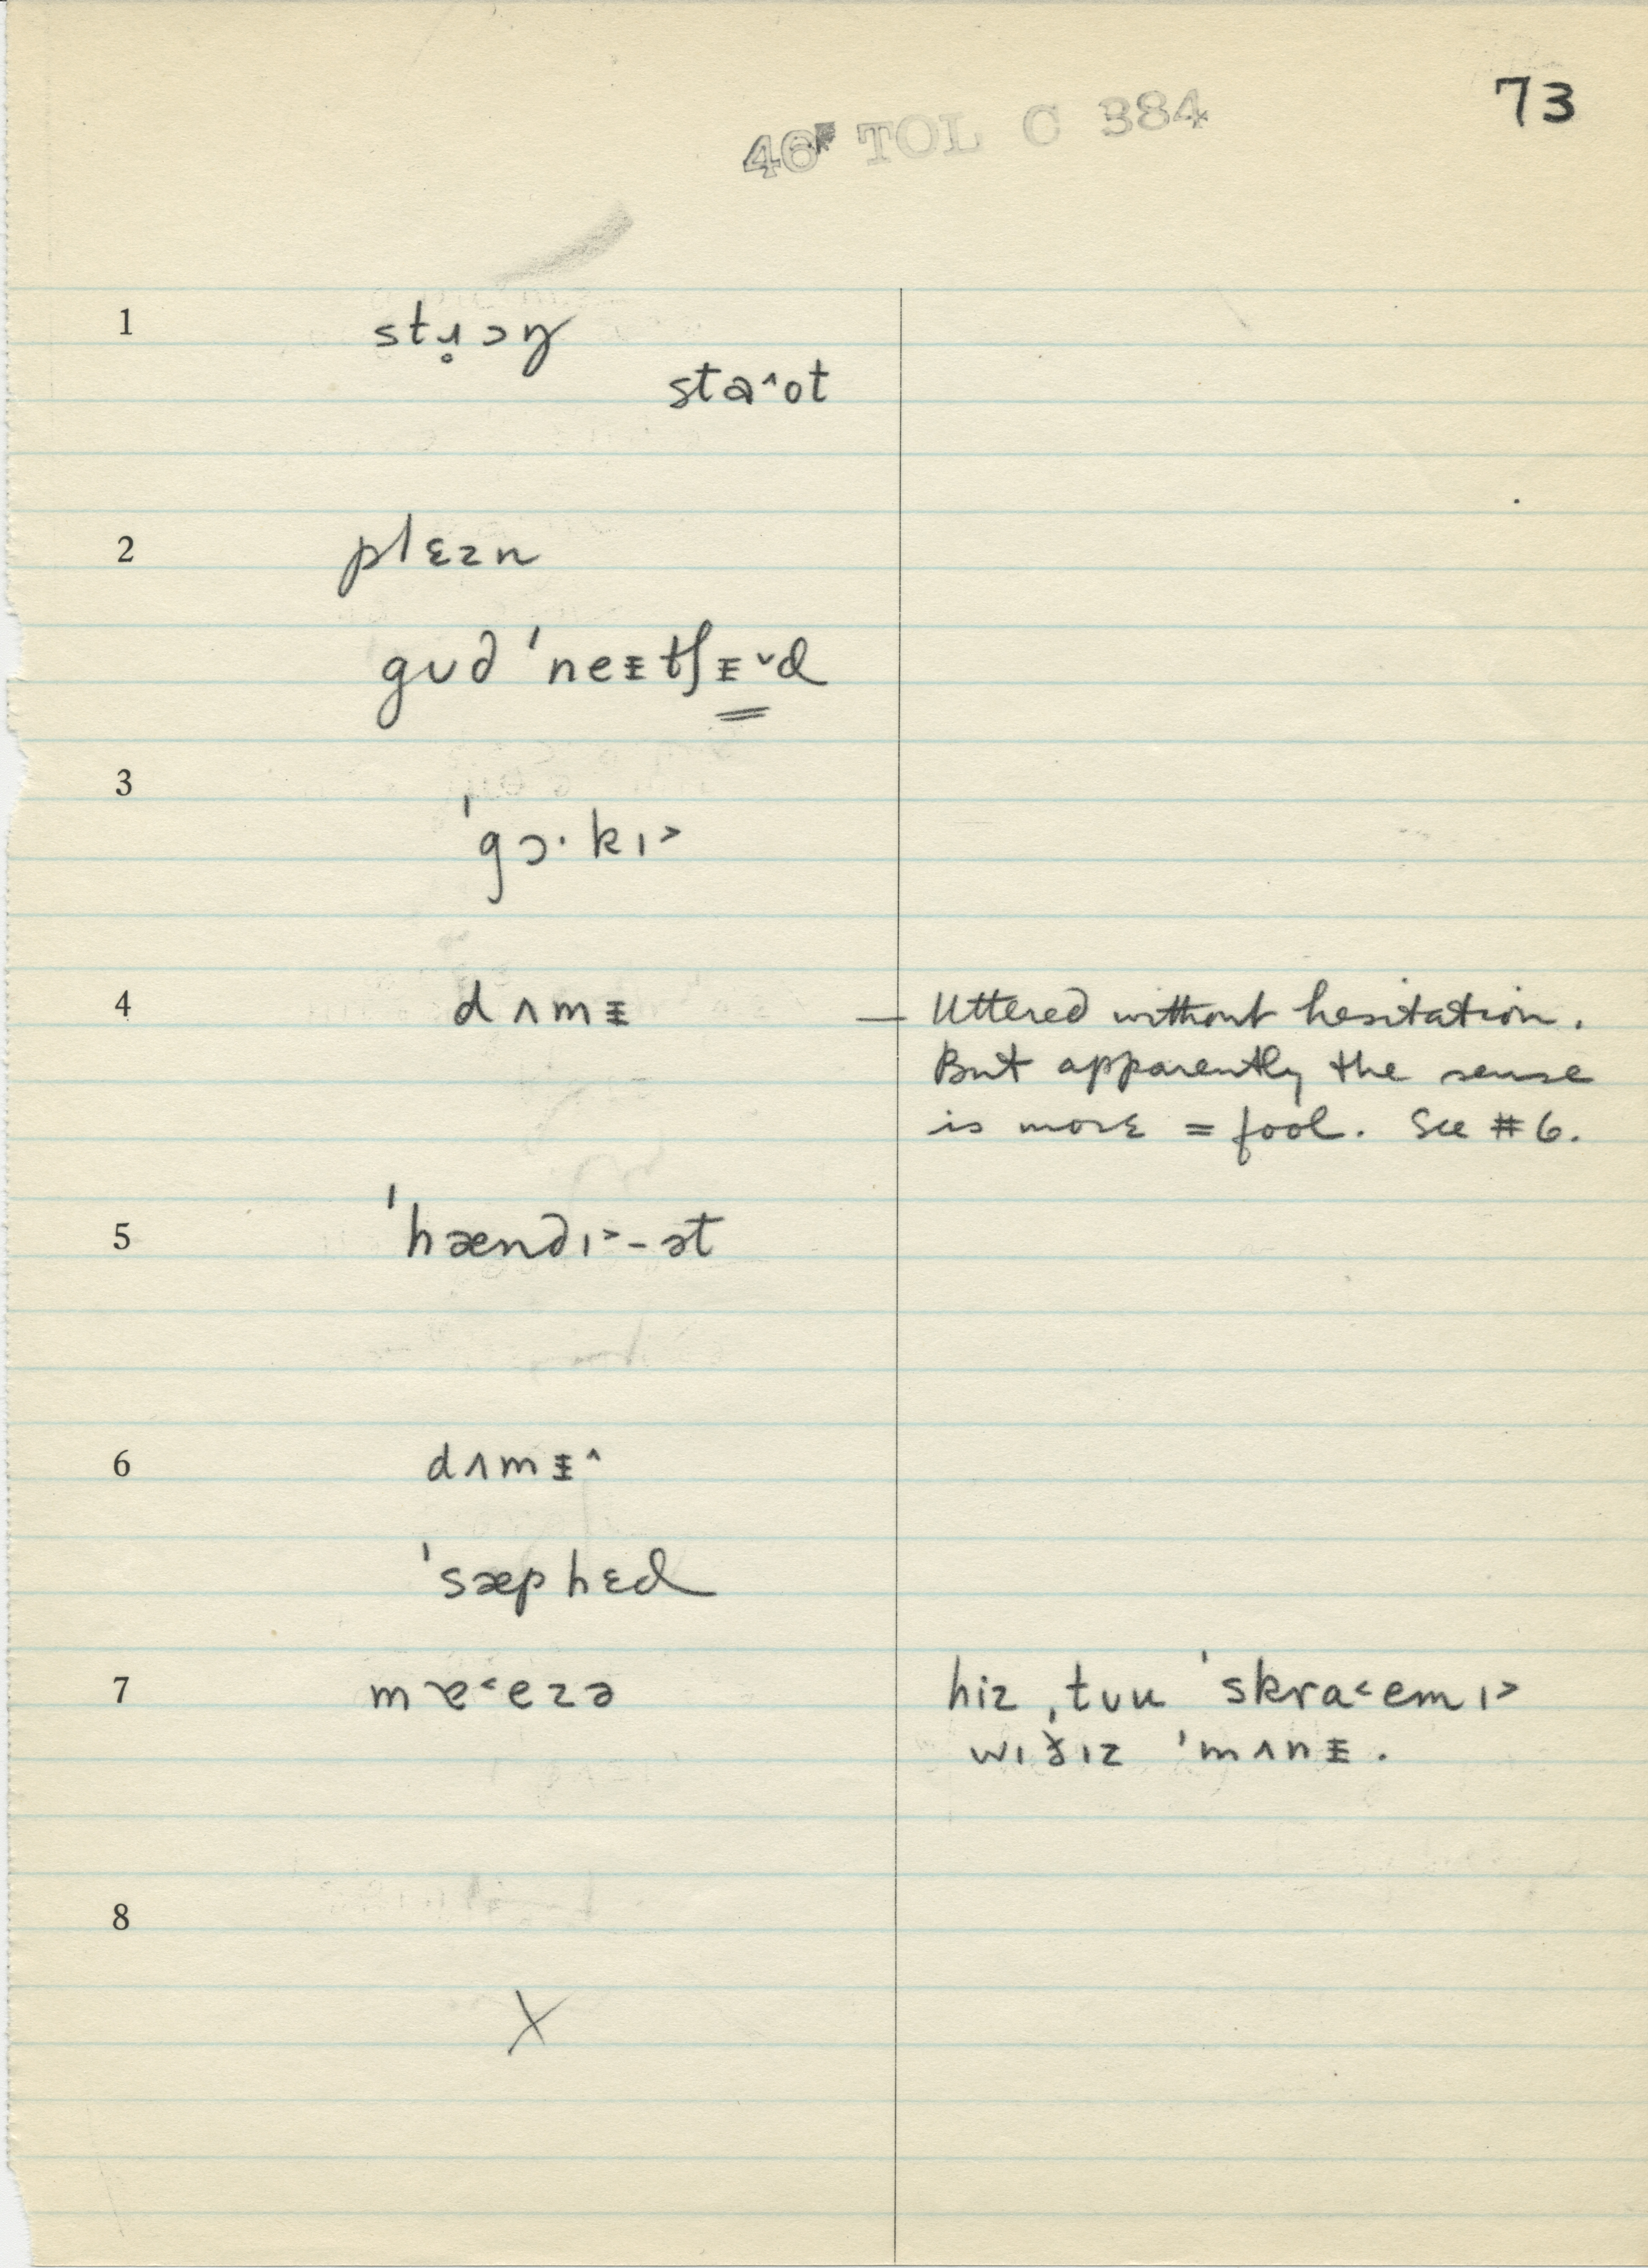 73
46 TOL C 384
1 stɹ̥ɔŋ
staˆot
2 plɛzn
gud ˈneᵻtʃᵻ̳ˇd
3
ˈgɔ·kı˃
4 dʌmᵻ — Uttered without hesitation.
But apparently the sense
is more = fool. See #6.
5 ˈhændı˃-ət
6 dʌmᵻˆ
ˈsæphɛd
7 mɐ˂ezə hiz ˌtʊu ˈskra˂emı˃
wıðız ˈmʌnᵻ.
8
X